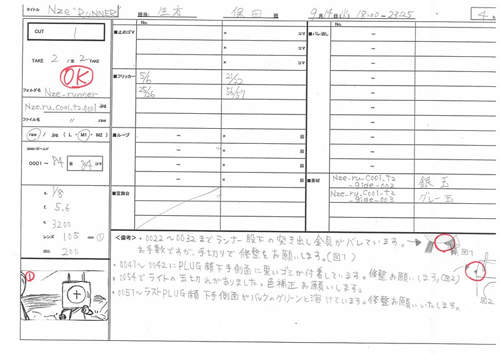 タイトル Nze "RUNNER"
担当: 佐藤 保田 9月14日(火) 18:00~23:25
CUT 1
TAKE 2 / 全 2 TAKE
OK
フォルダ名
Nze-runner
Nze.ru.C001.t2.0001 .jpg
ファイル名
raw / jpg (L・M1・M2)
0001~84 全 84 コマ
s. 1/8
f. 5.6
K. 3200
レンズ 105
ISO 200
■止めゴマ No. × コマ
■フリッカー
5/6
21/22
25/26
56/57
■ループ
回
■バレ消し No.
■素材
Nze-ru.C001.t2-gide-002 銀玉
Nze-ru.C001.t2-gide-003 グレー玉
<備考>・0022~0032までランナー股下の突き出し金具がバレています。
お手数ですが、手切りで修整をお願いします。(図1)
・0041~0042にPLUG顔下手側面に黒いゴミが付着しています。修整お願いします。(図2)
・0054でライトの玉切れがありました。色補正お願いします。
・0051~ラストPLUG顔下手側面がバックのグリーンと溶けています。修整お願いいたします。
図1
図2
①